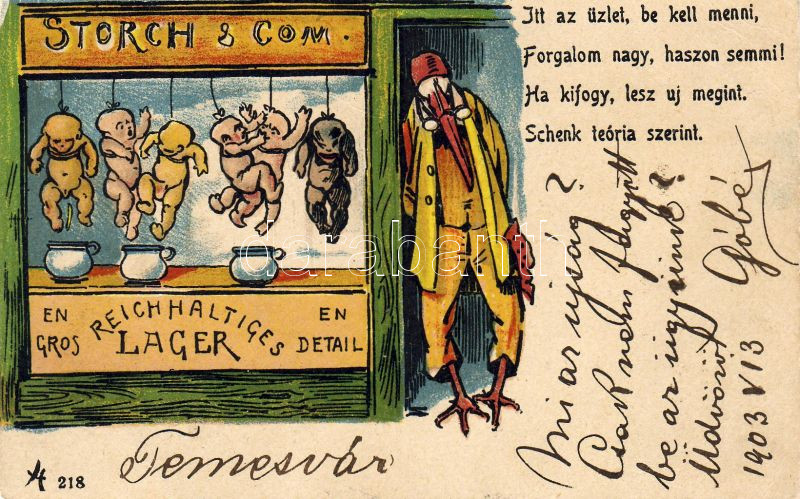 STORCH & COM.
EN GROS
REICHHALTIGES
LAGER
EN DETAIL
Itt az üzlet, be kell menni,
Forgalom nagy, haszon semmi!
Ha kifogy, lesz uj megint.
Schenk teória szerint.
Mi az ujság?
Csak nem fagyott
be az ügyünk?
Üdvözöl
Góbé
1903 V 13
Temesvár
218
darabanth